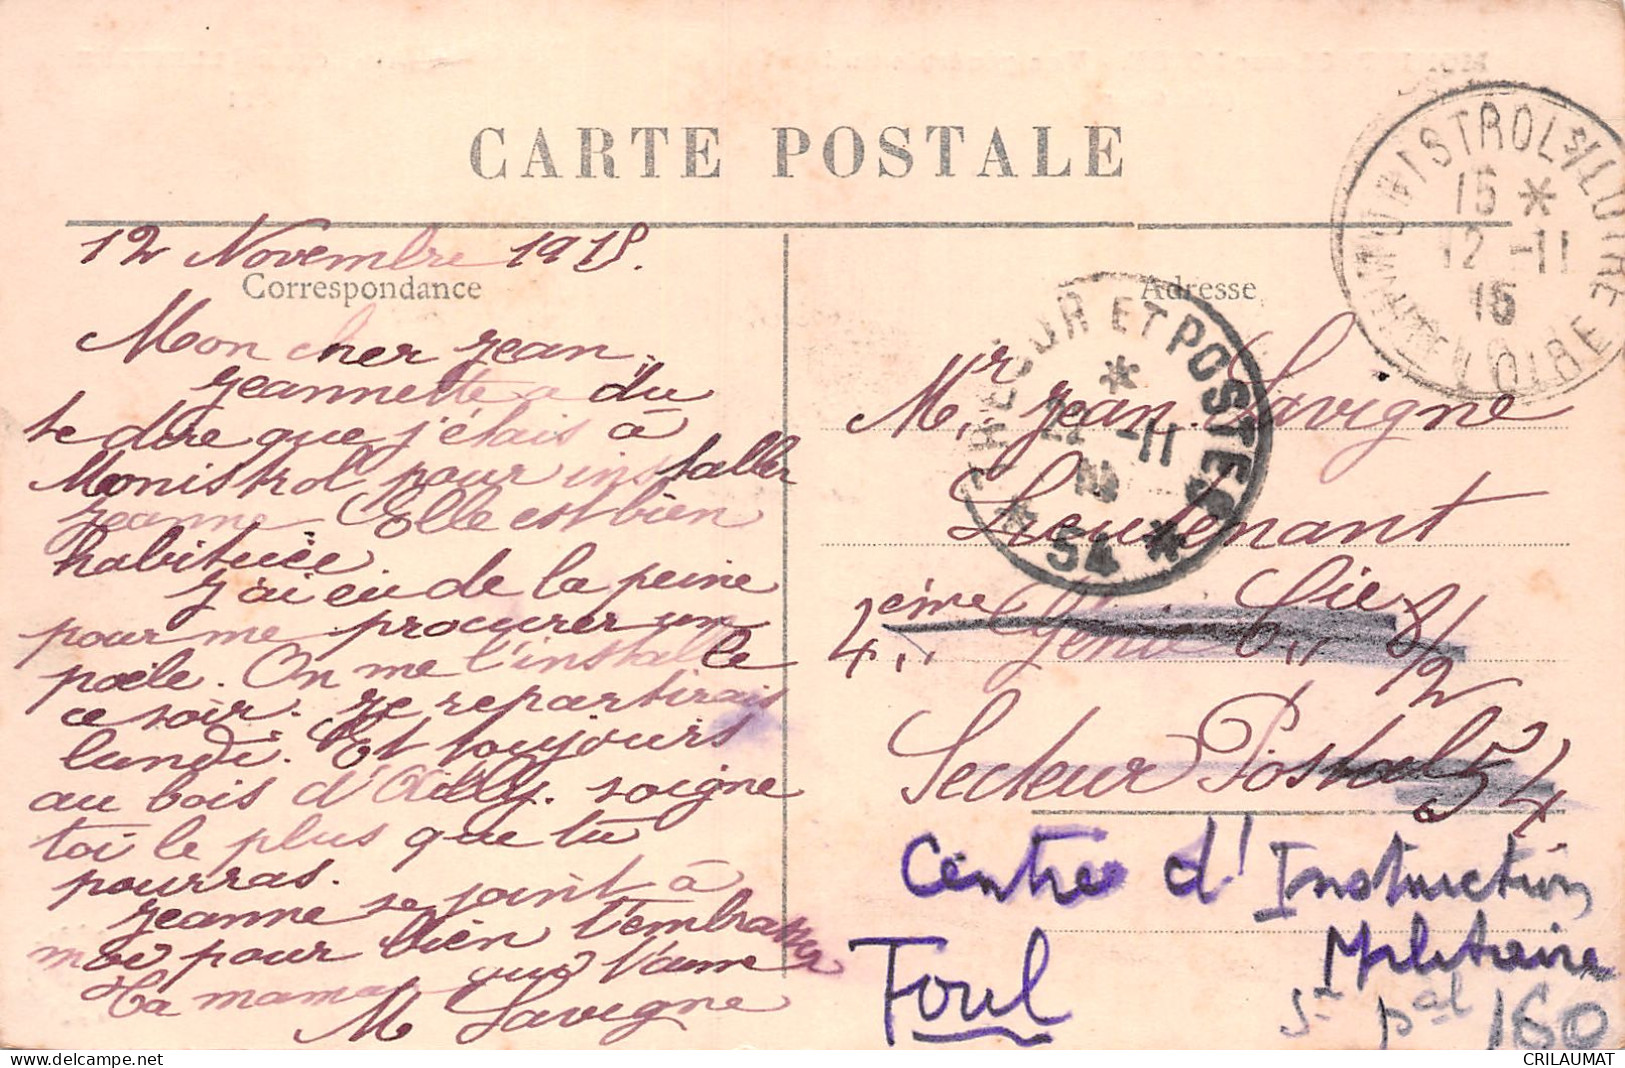 CARTE POSTALE
Correspondance
12 Novembre 1915.
Mon cher Jean,
Jeannette a du
te dire que j'étais à
Monistrol pour installer
Jeanne. Elle est bien
habituée.
J'ai eu de la peine
pour me procurer un
poële. On me l'installe
ce soir. Je repartirais
lundi. Et toujours
au bois d'Ailly. soigne
toi le plus que tu
pourras.
Jeanne se joint à
moi pour bien t'embrasser
Ta maman qui t'aime
M Lavigne
Adresse
Mr. Jean Lavigne
Lieutenant
4ème Génie Cie 6/2
Secteur Postal 54
Centre d'Instruction
Militaire
Toul
St pal 160
MONISTROL S/LOIRE
15 *
12 -11
15
TRESOR ET POSTES
*
22 -11
15
* 54 *
CRILAUMAT